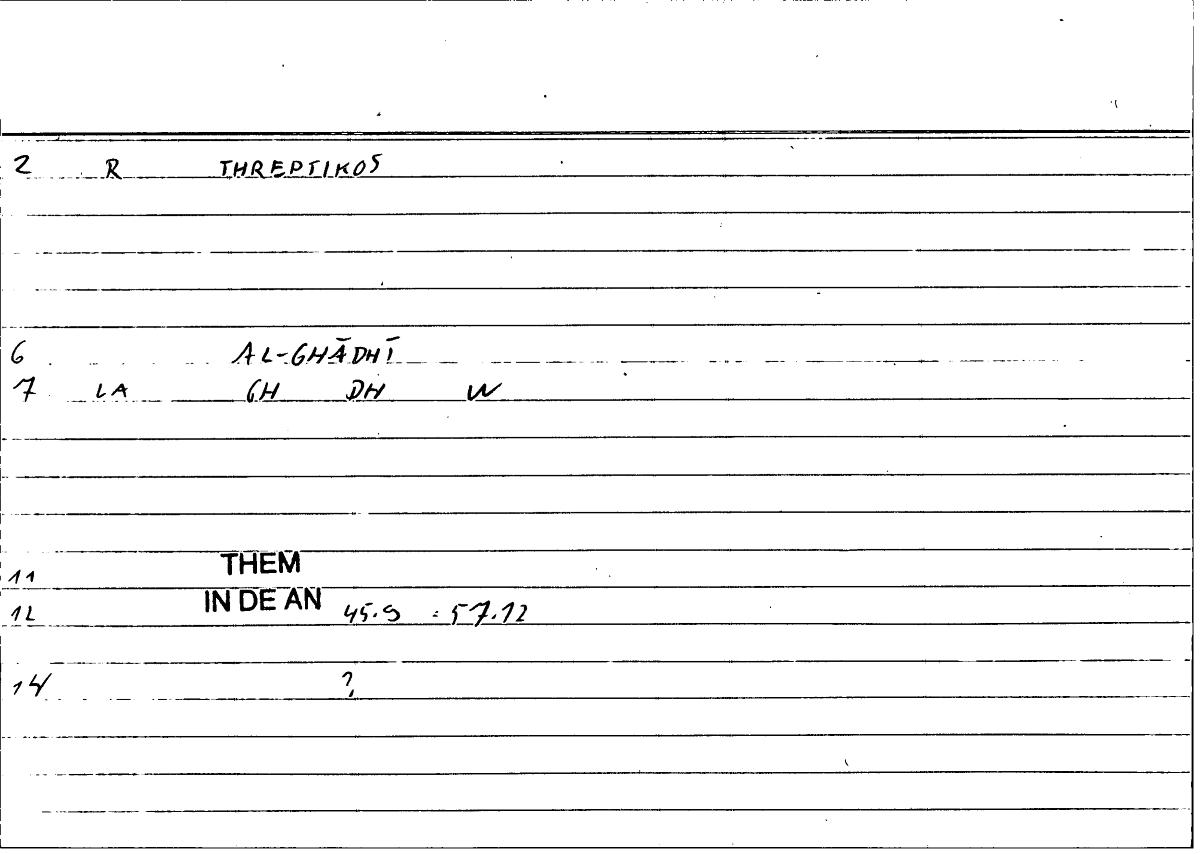 2 R THREPTIKOS
6 AL-GHĀDHĪ
7 LA GH DH W
11 THEM
12 IN DE AN 45.9 = 57.12
14 ?